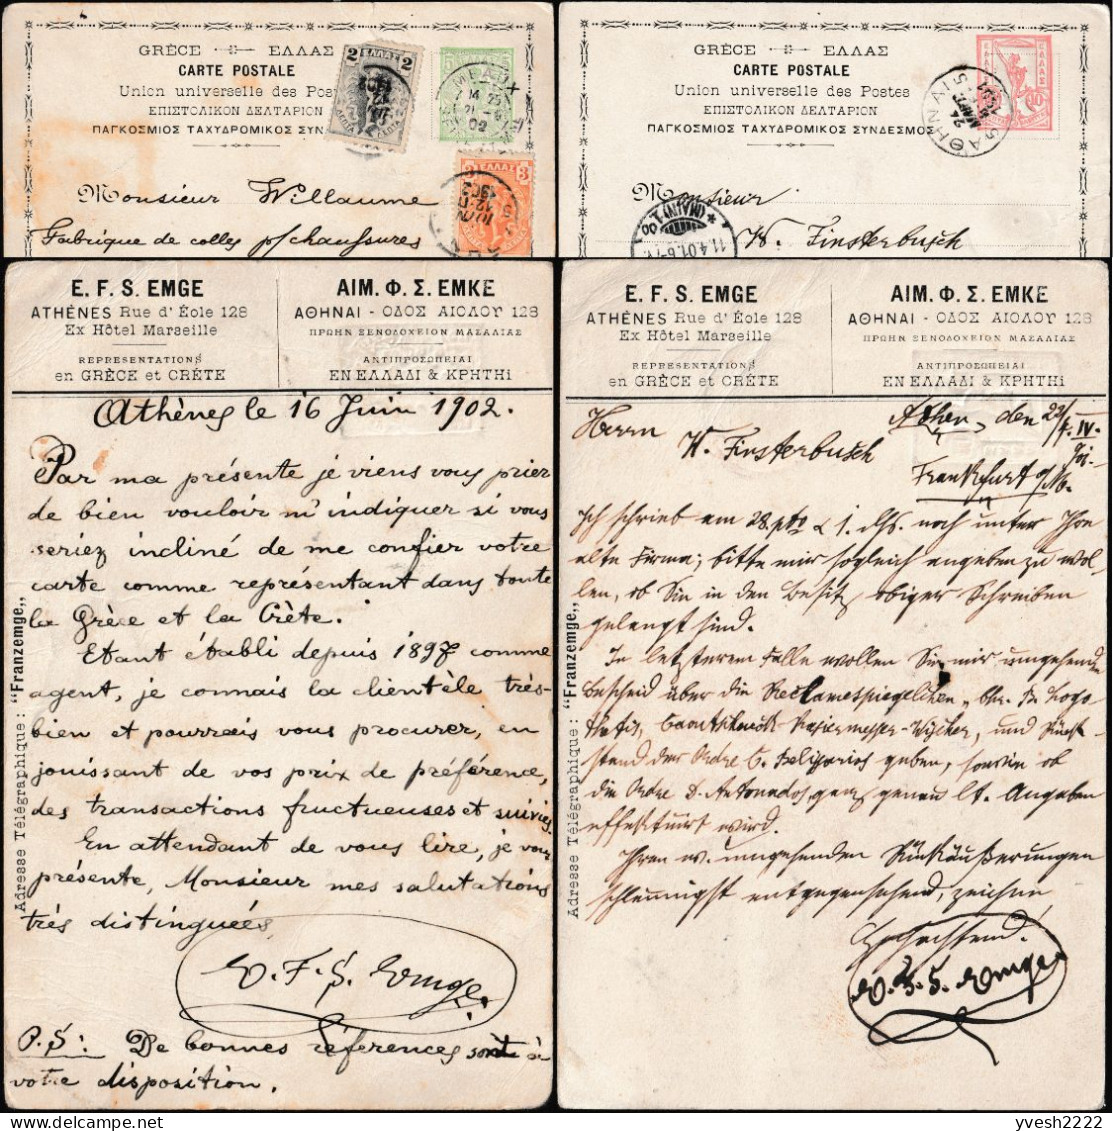 GRÈCE ΕΛΛΑΣ
CARTE POSTALE
Union universelle des Pos
ΕΠΙΣΤΟΛΙΚΟΝ ΔΕΛΤΑΡΙΟΝ
ΠΑΓΚΟΣΜΙΟΣ ΤΑΧΥΔΡΟΜΙΚΟΣ ΣΥΝ
2 ΕΛΛΑΣ 2
MEAUX
02
3 ΕΛΛΑΣ 3
1902
Monsieur Willaume
Fabrique de colles p/ chaussures
GRÈCE ΕΛΛΑΣ
CARTE POSTALE
Union universelle des Postes
ΕΠΙΣΤΟΛΙΚΟΝ ΔΕΛΤΑΡΙΟΝ
ΠΑΓΚΟΣΜΙΟΣ ΤΑΧΥΔΡΟΜΙΚΟΣ ΣΥΝΔΕΣΜΟΣ
ΑΘΗΝΑΙ
10
Monsieur
(MAIN)
11.4.01.6-7
W. Finsterbusch
E. F. S. EMGE
ATHÈNES Rue d' Éole 128
Ex Hôtel Marseille
REPRESENTATIONS
en GRÈCE et CRÈTE
ΑΙΜ. Φ. Σ. ΕΜΚΕ
ΑΘΗΝΑΙ - ΟΔΟΣ ΑΙΟΛΟΥ 128
ΠΡΩΗΝ ΞΕΝΟΔΟΧΕΙΟΝ ΜΑΣΑΛΙΑΣ
ΑΝΤΙΠΡΟΣΩΠΕΙΑΙ
ΕΝ ΕΛΛΑΔΙ & ΚΡΗΤΗi
Athènes le 16 Juin 1902.
Par ma présente je viens vous prier
de bien vouloir m'indiquer si vous
seriez incliné de me confier votre
carte comme représentant dans toute
la Grèce et la Crète.
Etant établi depuis 1897 comme
agent, je connais la clientèle très-
bien et pourrais vous procurer, en
jouissant de vos prix de préférence,
des transactions fructueuses et suivies.
En attendant de vous lire, je vous
présente, Monsieur mes salutations
très distinguées
E. F. S. Emge.
P.S: De bonnes références sont à
votre disposition.
Adresse Télégraphique: "Franzemge,,
E. F. S. EMGE
ATHÈNES Rue d' Éole 128
Ex Hôtel Marseille
REPRESENTATIONS
en GRÈCE et CRÈTE
ΑΙΜ. Φ. Σ. ΕΜΚΕ
ΑΘΗΝΑΙ - ΟΔΟΣ ΑΙΟΛΟΥ 128
ΠΡΩΗΝ ΞΕΝΟΔΟΧΕΙΟΝ ΜΑΣΑΛΙΑΣ
ΑΝΤΙΠΡΟΣΩΠΕΙΑΙ
ΕΝ ΕΛΛΑΔΙ & ΚΡΗΤΗi
Athen, den
Herrn
W. Finsterbusch
Frankfurt a/M.
Ich schrieb am 28. pto & 1. ds. noch unter Ihre
alte Firma; bitte mir sogleich angeben zu wol-
len, ob Sie in den Besitz obiger Schreiben
gelangt sind.
In letzterem Falle wollen Sie mir umgehende
Bescheid über die Reclamespiegelchen
Rasiermesser und Rück-
stand der Ordre geben, sowie ob
die Ordre D. Antonados, ganz genau lt. Angaben
effektuirt wird.
Ihren w. umgehenden Rückäußerungen
schleunigst entgegensehend, zeichne
Hochachtend!
E. F. S. Emge.
Adresse Télégraphique: "Franzemge,,
yvesh2222